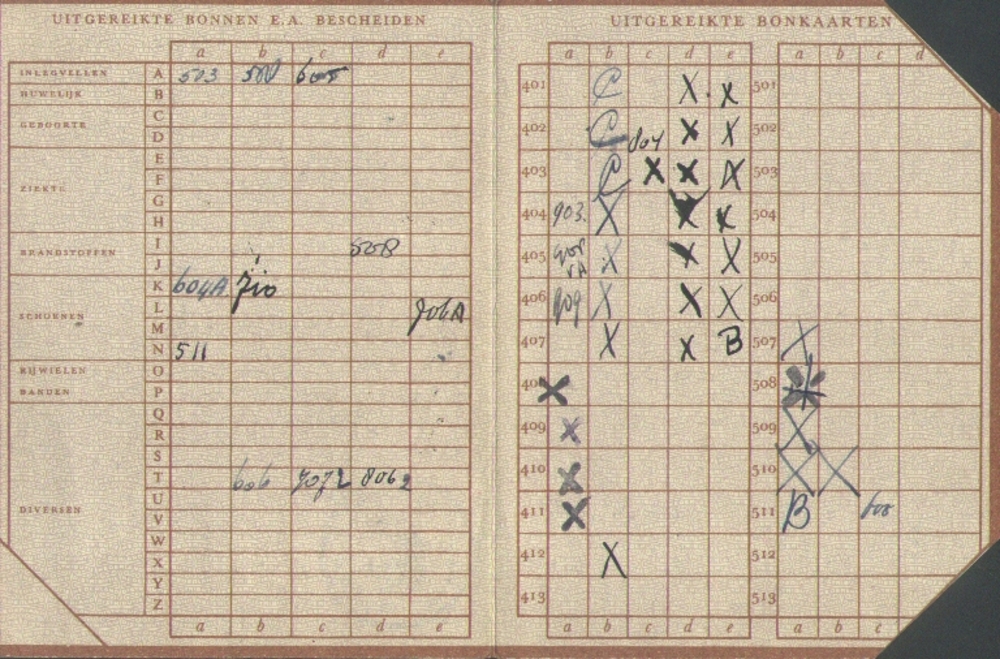 UITGEREIKTE BONNEN E.A. BESCHEIDEN
a b c d e
INLEGVELLEN A 503 500 605
HUWELIJK B
C
GEBOORTE
D
E
F
ZIEKTE
G
H
I 508
BRANDSTOFFEN
J
K 604A 710
L 706A
SCHOENEN
M
N 511
RIJWIELEN O
BANDEN P
Q
R
S
T 606 7072 8062
U
DIVERSEN
V
W
X
Y
Z
a b c d e
UITGEREIKTE BONKAARTEN
a b c d e a b c d
401 C X X 501
402 C 804 X X 502
403 C X X X 503
404 903. X X X 504
405 X X X 505
406 909 X X X 506
407 X X B 507 X
408 X 508 X
409 X 509 X
410 X 510 X X
411 X 511 B 608
412 X 512
413 513
a b c d e a b c